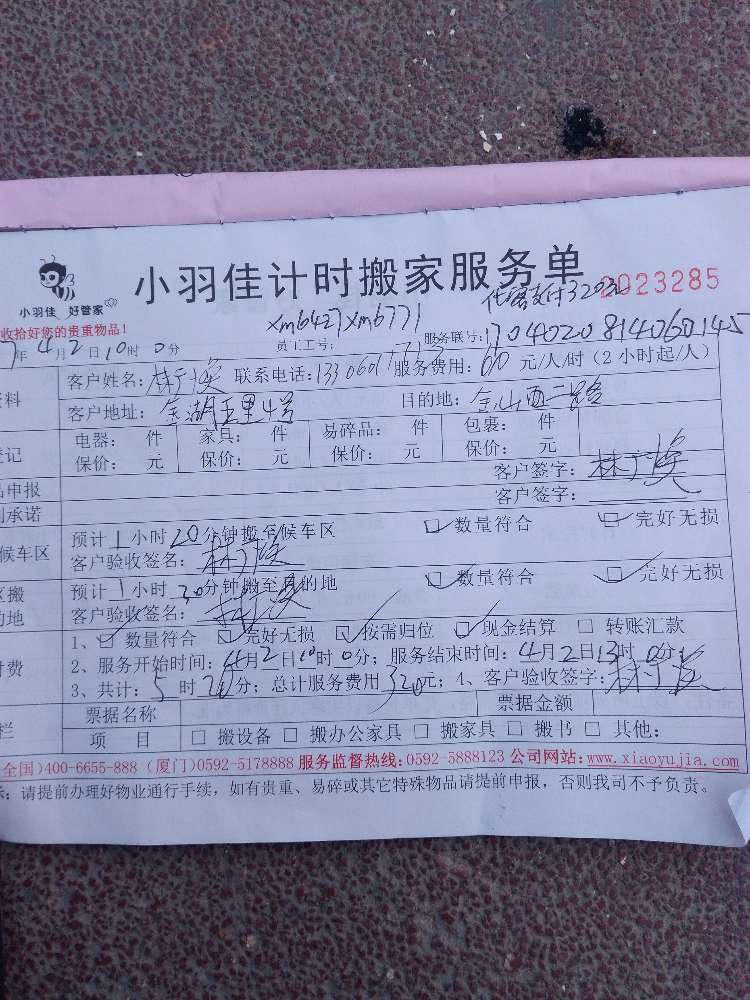 小羽佳计时搬家服务单
小羽佳 好管家
代客支付320元
0023285
收拾好您的贵重物品！
xm6427 xm6771
7年4月2日10时0分 员工工号： 服务联号：170402081406045
客户姓名：林广焕 联系电话： 服务费用：60元/人/时（2小时起/人）
资料
客户地址：金湖五里4号 目的地：金山西二路
电器： 件 家具： 件 易碎品： 件 包裹： 件
登记
保价： 元 保价： 元 保价： 元 保价： 元
客户签字：林广焕
品申报
客户签字：
承诺
预计1小时20分钟搬至候车区 数量符合 完好无损
候车区
客户验收签名：林广焕
预计1小时30分钟搬至目的地 数量符合 完好无损
区搬
的地
客户验收签名：林广焕
1、数量符合 完好无损 按需归位 现金结算 转账汇款
付费
2、服务开始时间：4月2日10时0分；服务结束时间：4月2日13时0分；
3、共计：5时20分；总计服务费用320元；4、客户验收签字：林广焕
票据名称 票据金额
栏
项 目 搬设备 搬办公家具 搬家具 搬书 其他：
全国)400-6655-888 (厦门)0592-5178888 服务监督热线：0592-5888123 公司网站：www.xiaoyujia.com
示：请提前办理好物业通行手续，如有贵重、易碎或其它特殊物品请提前申报，否则我司不予负责。